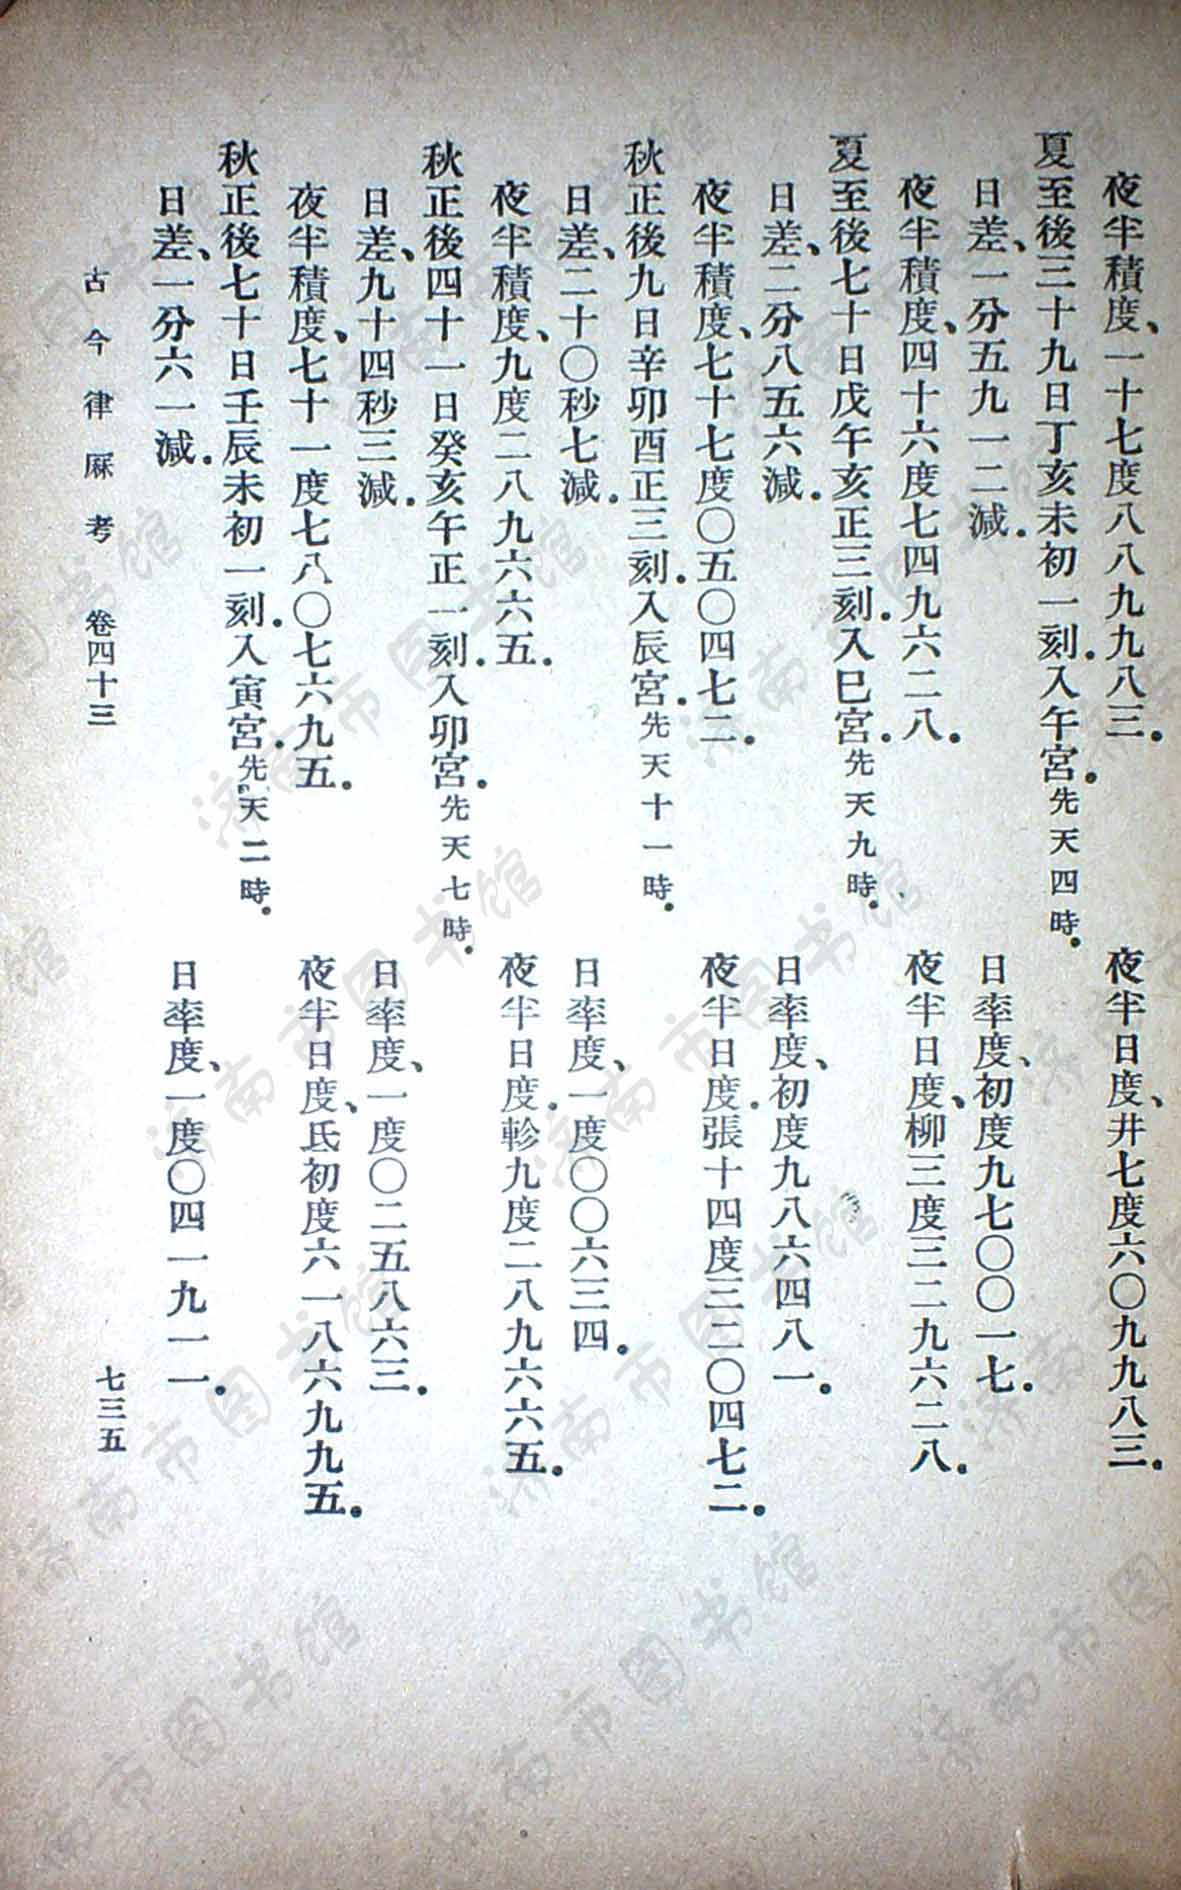 夜半積度、一十七度八八九九八三。　夜半日度、井七度六〇九九八三。
夏至後三十九日丁亥未初一刻。入午宮。先天四時。
日差、一分五九一二減。　日率度、初度九七〇〇一七。
夜半積度、四十六度七四九六二八。　夜半日度、柳三度三二九六二八。
夏至後七十日戊午亥正三刻。入巳宮。先天九時。
日差、二分八五六減。　日率度、初度九八六四八一。
夜半積度、七十七度〇五〇四七二。　夜半日度。張十四度三二〇四七二。
秋正後九日辛卯酉正三刻。入辰宮。先天十一時。
日差、二十〇秒七減。　日率度、一度〇〇六三四。
夜半積度、九度二八九六六五。　夜半日度。軫九度二八九六六五。
秋正後四十一日癸亥午正一刻。入卯宮。先天七時。
日差、九十四秒三減。　日率度、一度〇二五八六三。
夜半積度、七十一度七八〇七六九五。　夜半日度、氐初度六一八六九九五。
秋正後七十日壬辰未初一刻。入寅宮。先天二時。
日差、一分六一減。　日率度、一度〇四一九一一。
古今律厤考　卷四十三　七三五
济南市图书馆